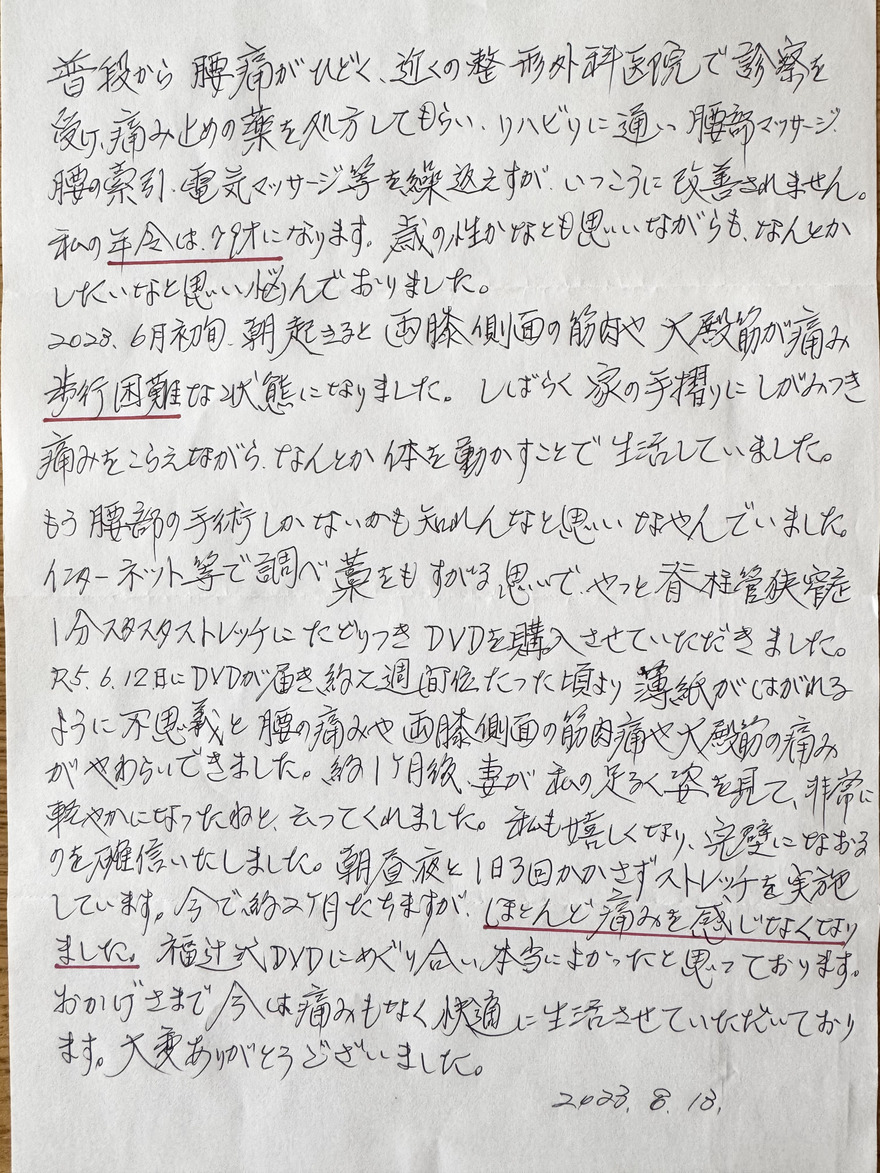 普段から腰痛がひどく、近くの整形外科医院で診察を
受け、痛み止めの薬を処方してもらい、リハビリに通っ腰部マッサージ、
腰の索引、電気マッサージ等を繰返えすが、いっこうに改善されません。
私の年令は、79才になります。歳の性かなとも思いいながらも、なんとか
したいなと思いい悩んでおりました。
2023、6月初旬、朝起きると両膝側面の筋肉や大殿筋が痛み
歩行困難な状態になりました。しばらく家の手摺りにしがみつき
痛みをこらえながら、なんとか体を動かすことで生活していました。
もう腰部の手術しかないかも知れんなと思いいなやんでいました。
インターネット等で調べ藁をもすがる思いで、やっと脊柱管狭窄症
1分スタスタストレッチにたどりつきDVDを購入させていただきました。
R5.6.12日にDVDが届き約2週間位たった頃より薄紙がはがれる
ように不思議と腰の痛みや両膝側面の筋肉痛や大殿筋の痛み
がやわらいできました。約1ヶ月後、妻が私の足るく姿を見て、非常に
軽やかになったねと、云ってくれました。私も嬉しくなり、完璧になおる
のを確信いたしました。朝昼夜と1日3回かかさずストレッチを実施
しています。今で約2ヶ月たちますが、ほとんど痛みを感じなくなり
ました。福辻式DVDにめぐり合い本当によかったと思っております。
おかげさまで今は痛みもなく快適に生活させていただいており
ます。大変ありがとうございました。
2023. 8. 13.